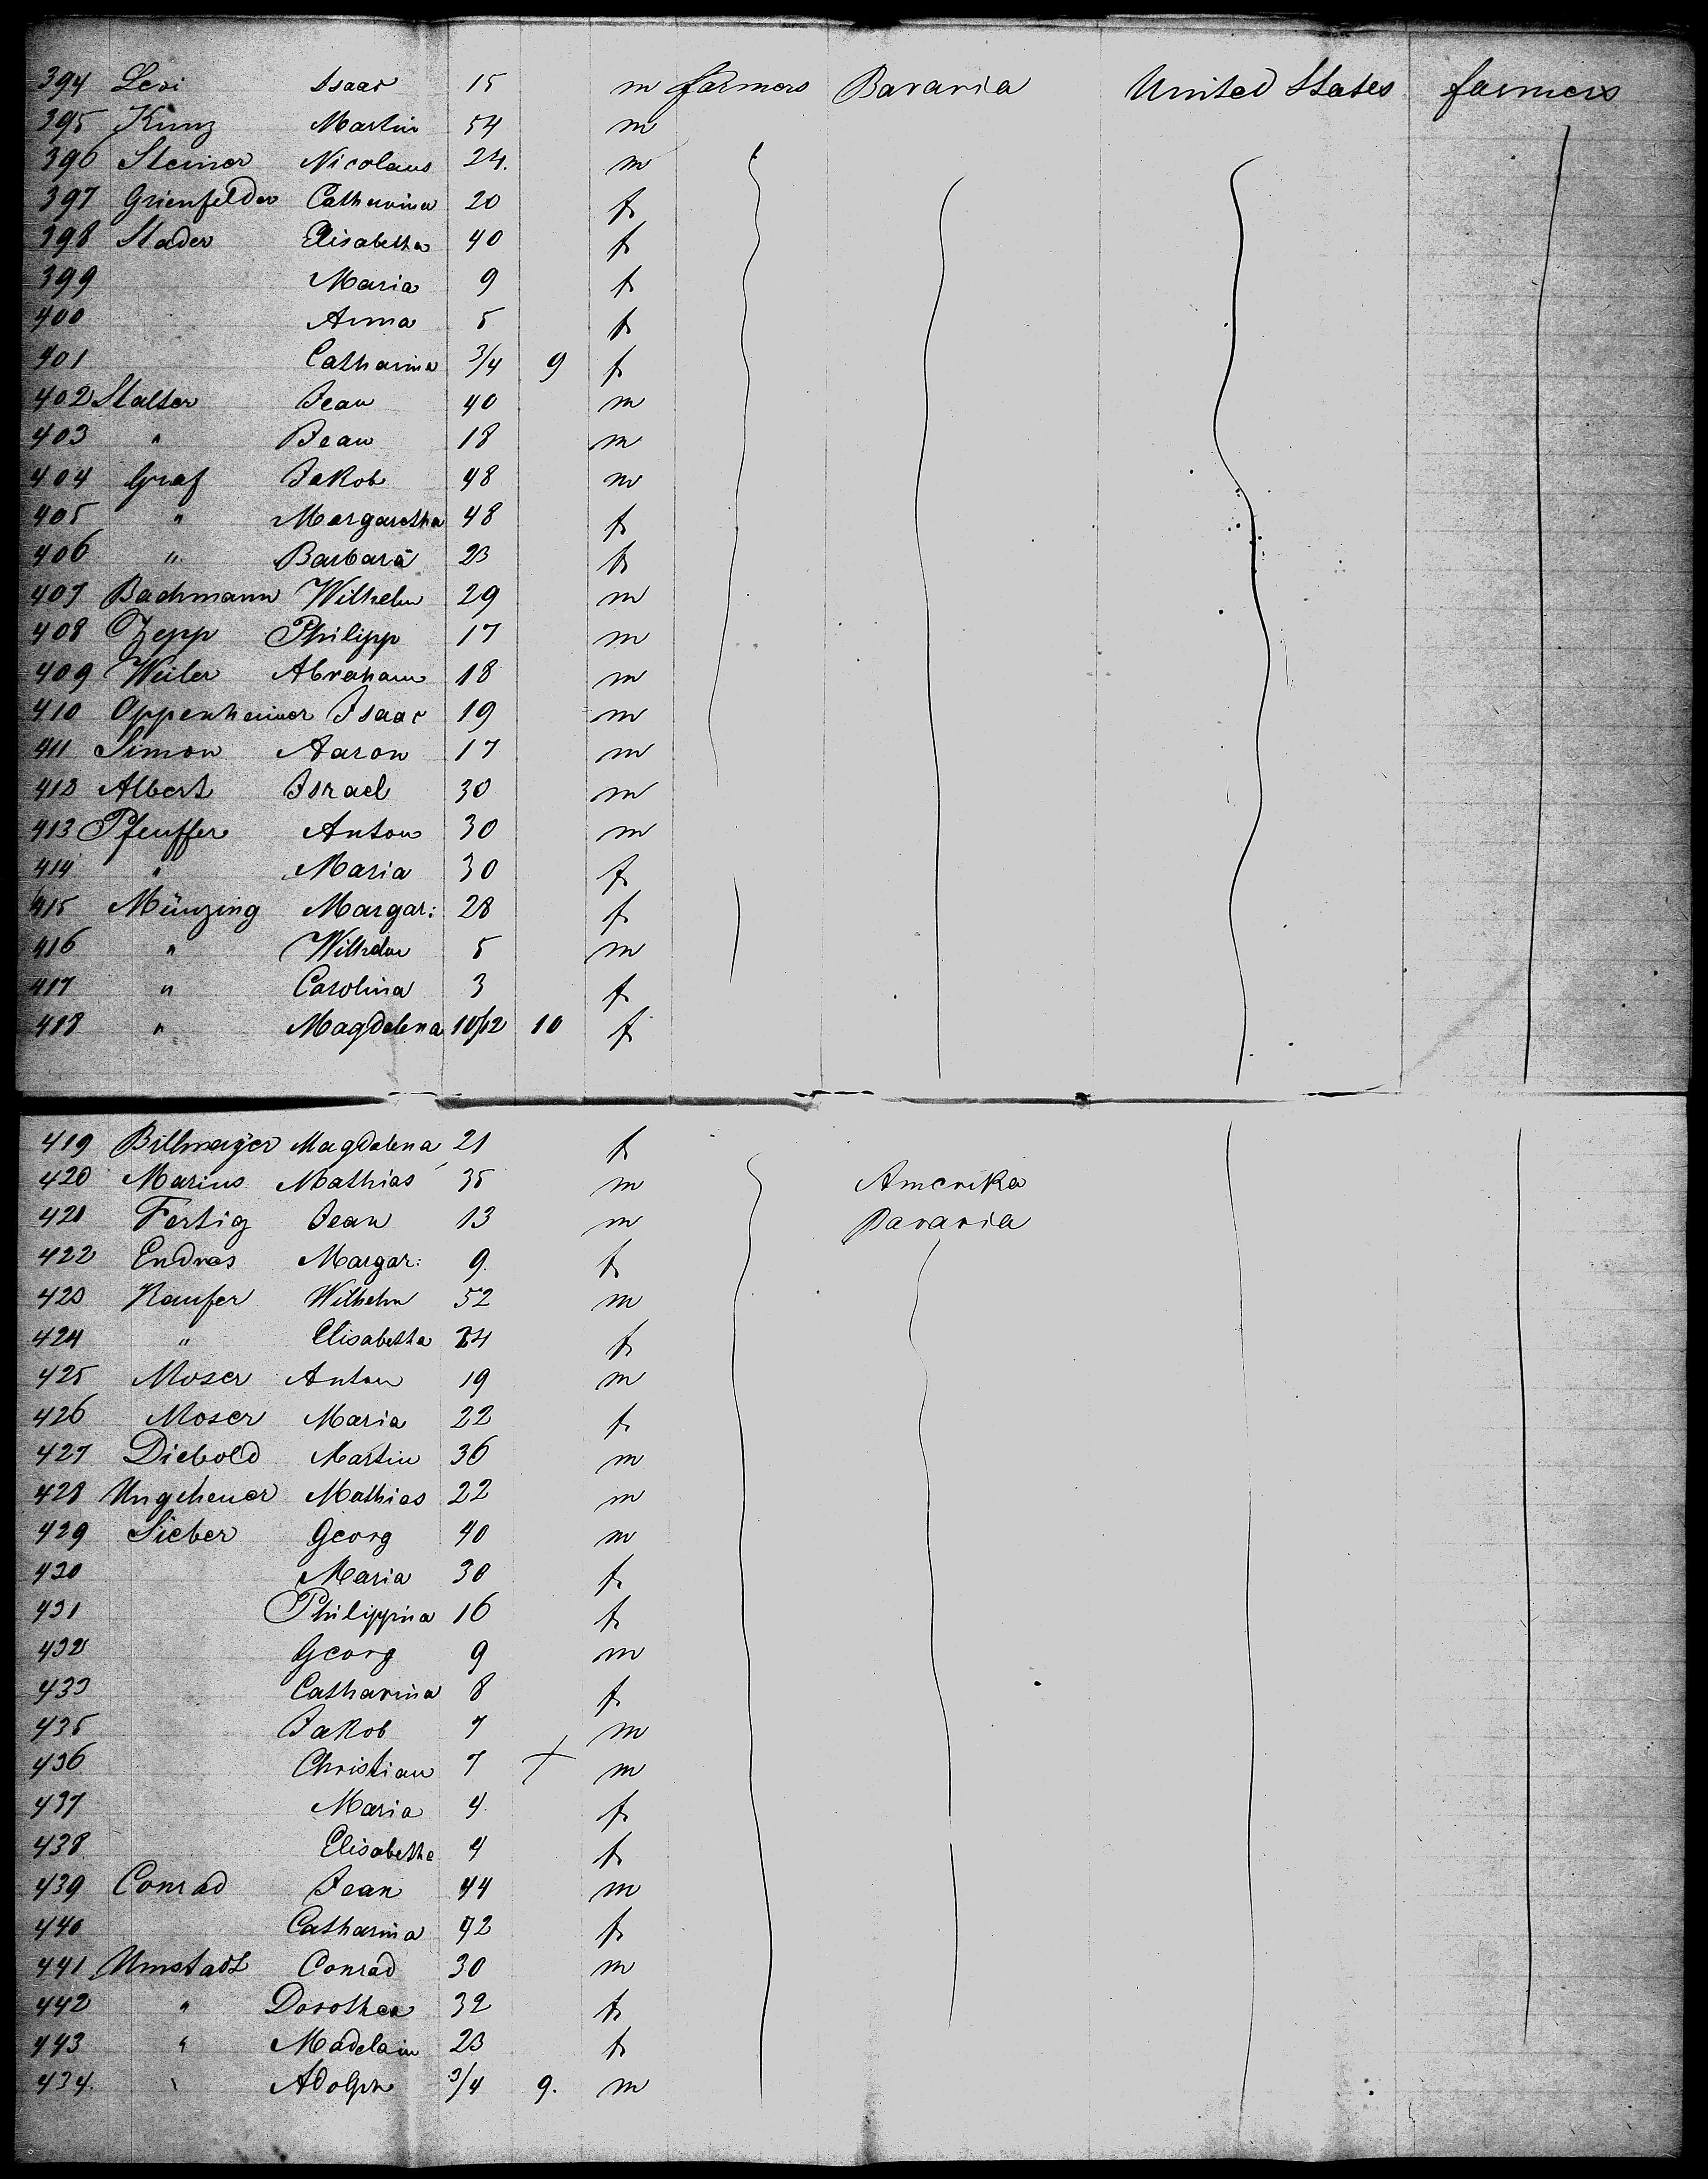 394 Levi Isaac 15 m farmers Bavaria United States farmers
395 Kunz Martin 54 m
396 Steiner Nicolaus 24. m
397 Grienfelder Catharina 20 f
398 Stader Elisabetha 40 f
399 Maria 9 f
400 Anna 5 f
401 Catharina 3/4 9 f
402 Stalter Jean 40 m
403 " Jean 18 m
404 Graf Jakob 48 m
405 " Margaretha 48 f
406 " Barbara 23 f
407 Bachmann Wilhelm 29 m
408 Zepp Philipp 17 m
409 Weiler Abraham 18 m
410 Oppenheimer Isaac 19 m
411 Simon Aaron 17 m
412 Albert Israel 30 m
413 Pfeuffer Anton 30 m
414 " Maria 30 f
415 Münzing Margar: 28 f
416 " Wilhelm 5 m
417 " Carolina 3 f
418 " Magdalena 10/12 10 f
419 Billmayer Magdalena 21 f
420 Marius Mathias 35 m Amerika
421 Fertig Jean 13 m Bavaria
422 Endres Margar: 9. f
423 Kaufer Wilhelm 52 m
424 " Elisabetha 24 f
425 Moser Anton 19 m
426 Moser Maria 22 f
427 Diebold Martin 36 m
428 Ungeheuer Mathias 22 m
429 Sieber Georg 40 m
430 Maria 30 f
431 Philippina 16 f
432 Georg 9 m
433 Catharina 8 f
435 Jakob 7 m
436 Christian 7 + m
437 Maria 4. f
438 Elisabetha 4 f
439 Conrad Jean 44 m
440 Catharina 42 f
441 Umstadt Conrad 30 m
442 " Dorothea 32 f
443 " Madelain 23 f
434. " Adolph 3/4 9. m